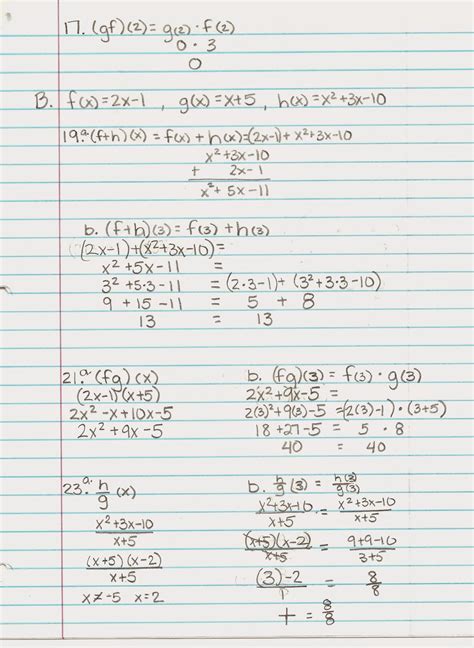 17. (gf)(2) = g(2) · f(2)
0 · 3
0
B. f(x)=2x-1 , g(x)=x+5 , h(x)=x²+3x-10
19.a (f+h)(x) = f(x) + h(x)=(2x-1)+x²+3x-10
x²+3x-10
+ 2x-1
x²+5x-11
b. (f+h)(3) = f(3) + h(3)
(2x-1)+(x²+3x-10)=
x²+5x-11 =
3²+5·3-11 = (2·3-1)+(3²+3·3-10)
9+15-11 = 5 + 8
13 = 13
21.a (fg)(x)
(2x-1)(x+5)
2x²-x+10x-5
2x²+9x-5
b. (fg)(3) = f(3) · g(3)
2x²+9x-5 =
2(3)²+9(3)-5 =(2(3)-1)·(3+5)
18+27-5 = 5 · 8
40 = 40
23.a. h/g (x)
x²+3x-10
x+5
(x+5)(x-2)
x+5
x≠-5 x=2
b. h/g (3) = h(3)/g(3)
x²+3x-10 / x+5 = x²+3x-10 / x+5
(x+5)(x-2) / x+5 = 9+9-10 / 3+5
(3)-2 / 1 = 8/8
1 = 8/8